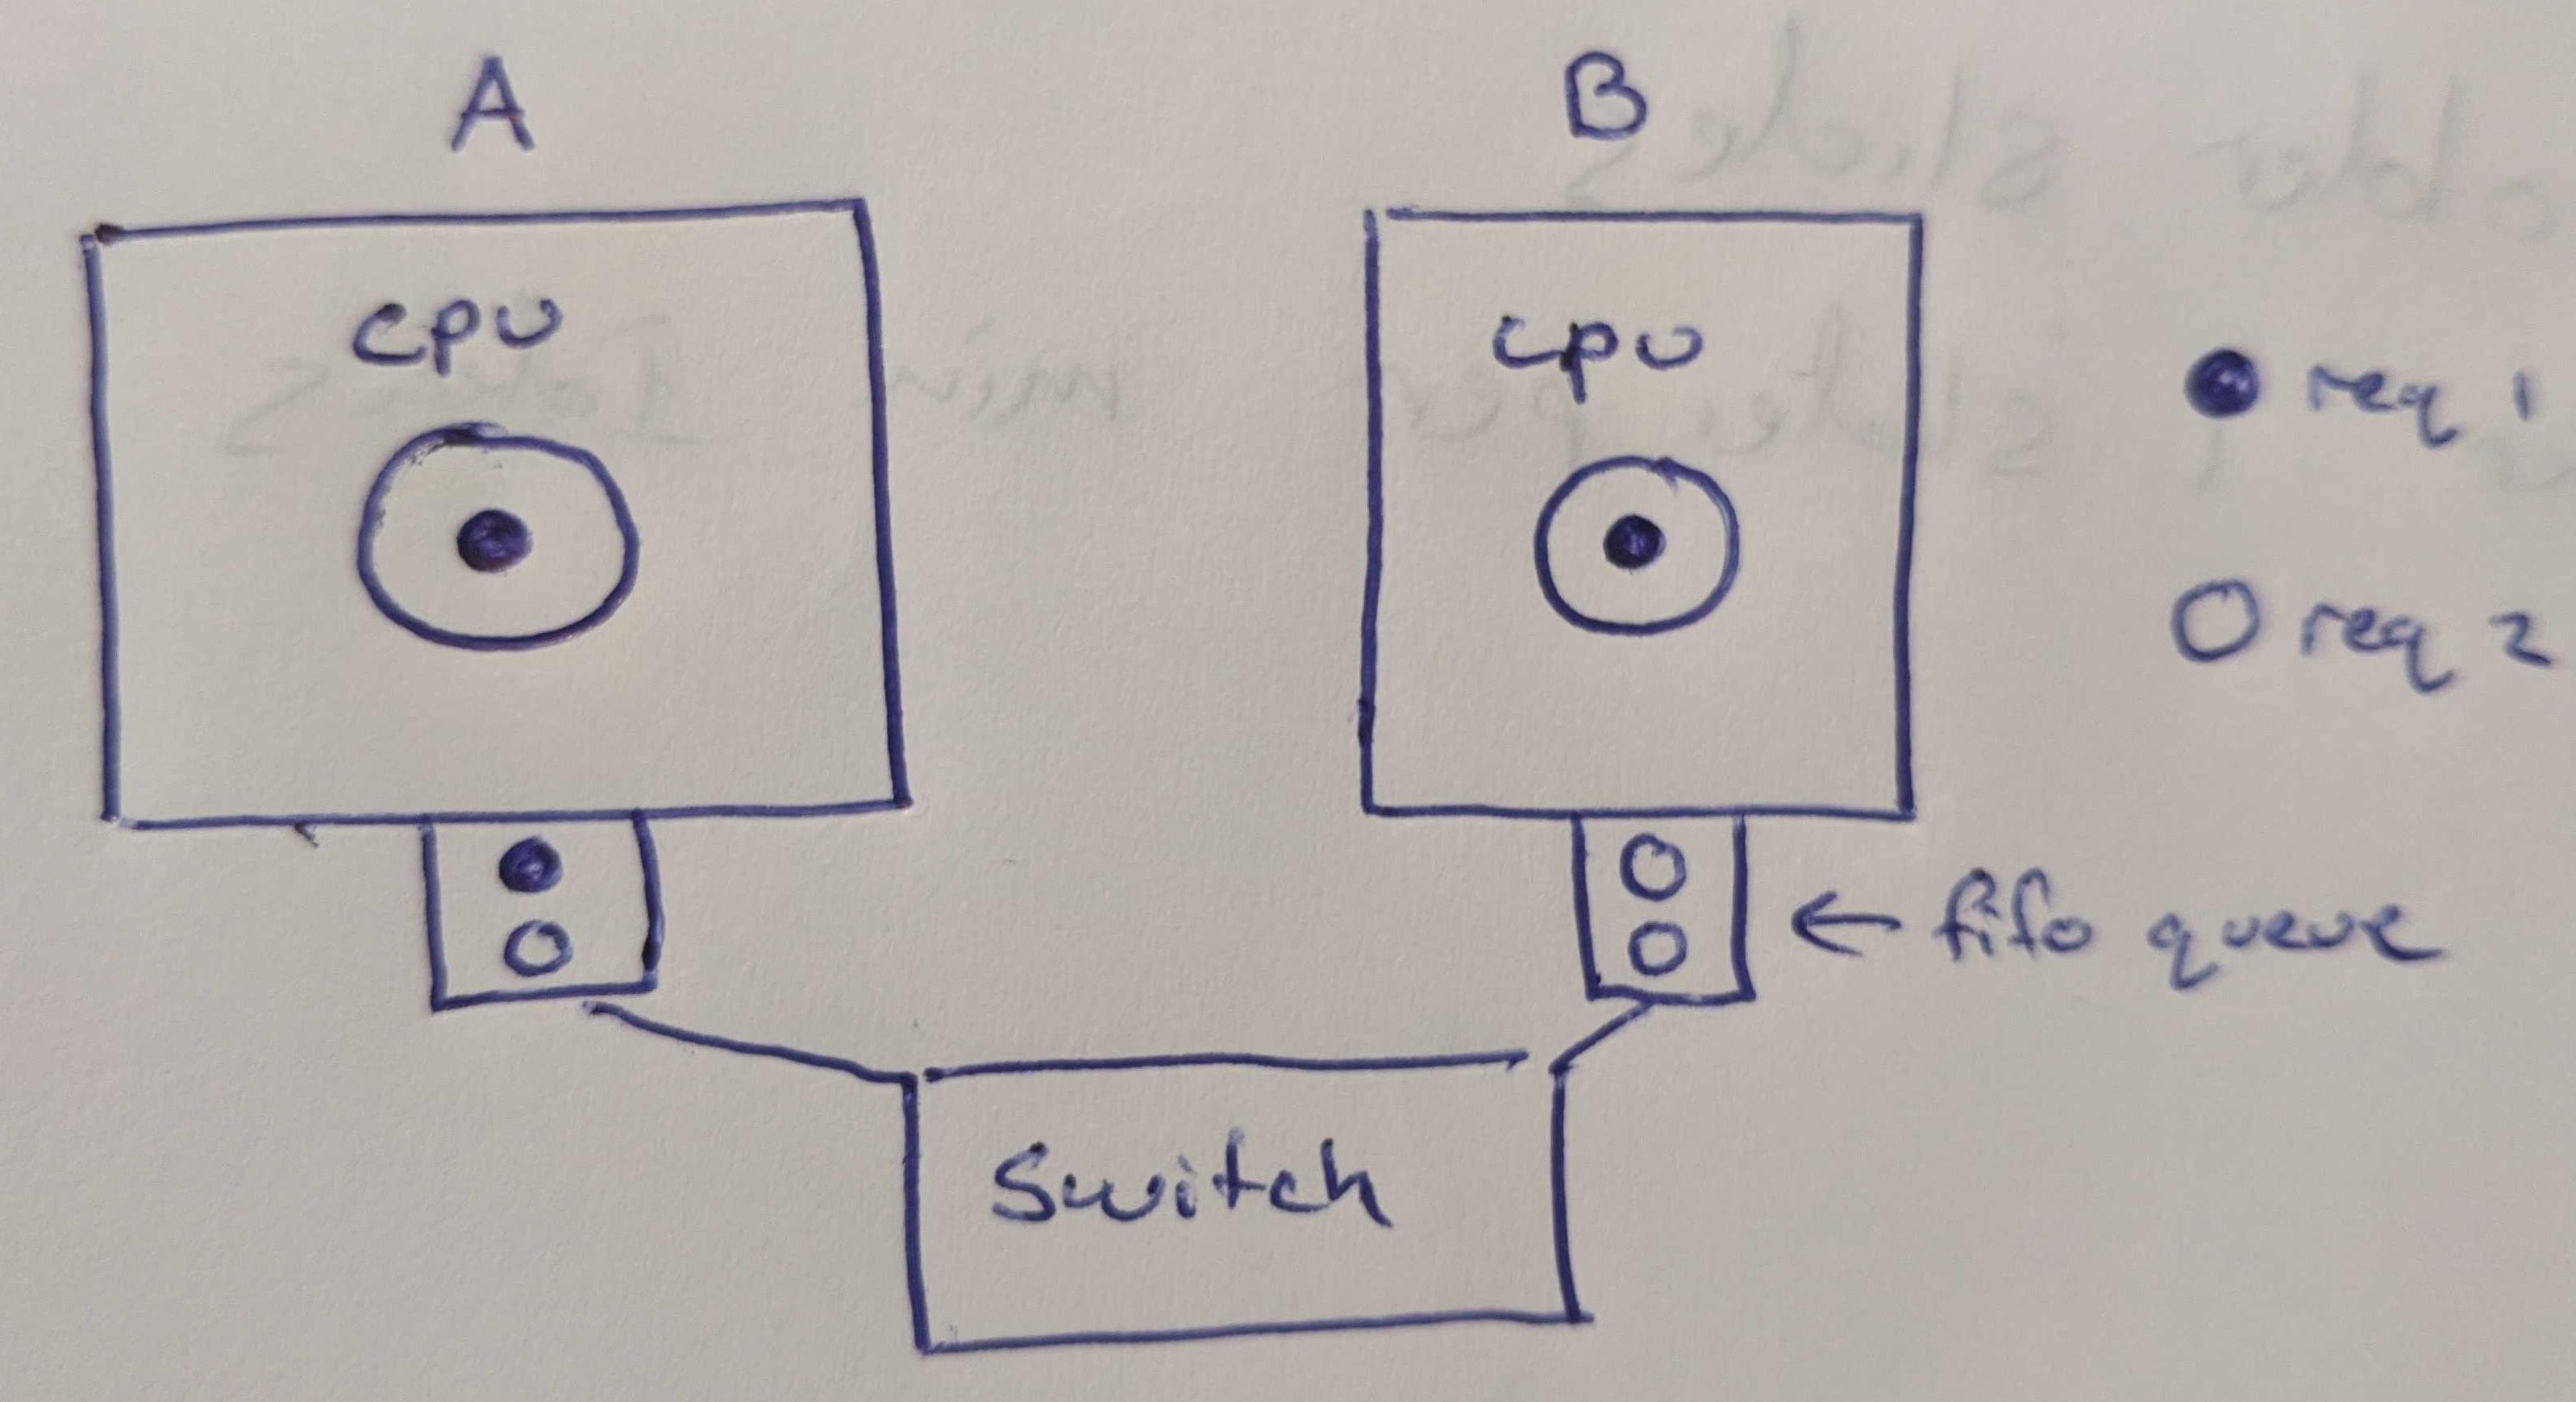 A
B
cpu
cpu
req 1
req 2
fifo queue
Switch